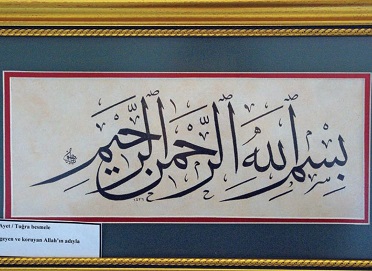 بسم الله الرحمن الرحيم
Ayet / Tuğra besmele
geyen ve koruyan Allah'ın adıyla